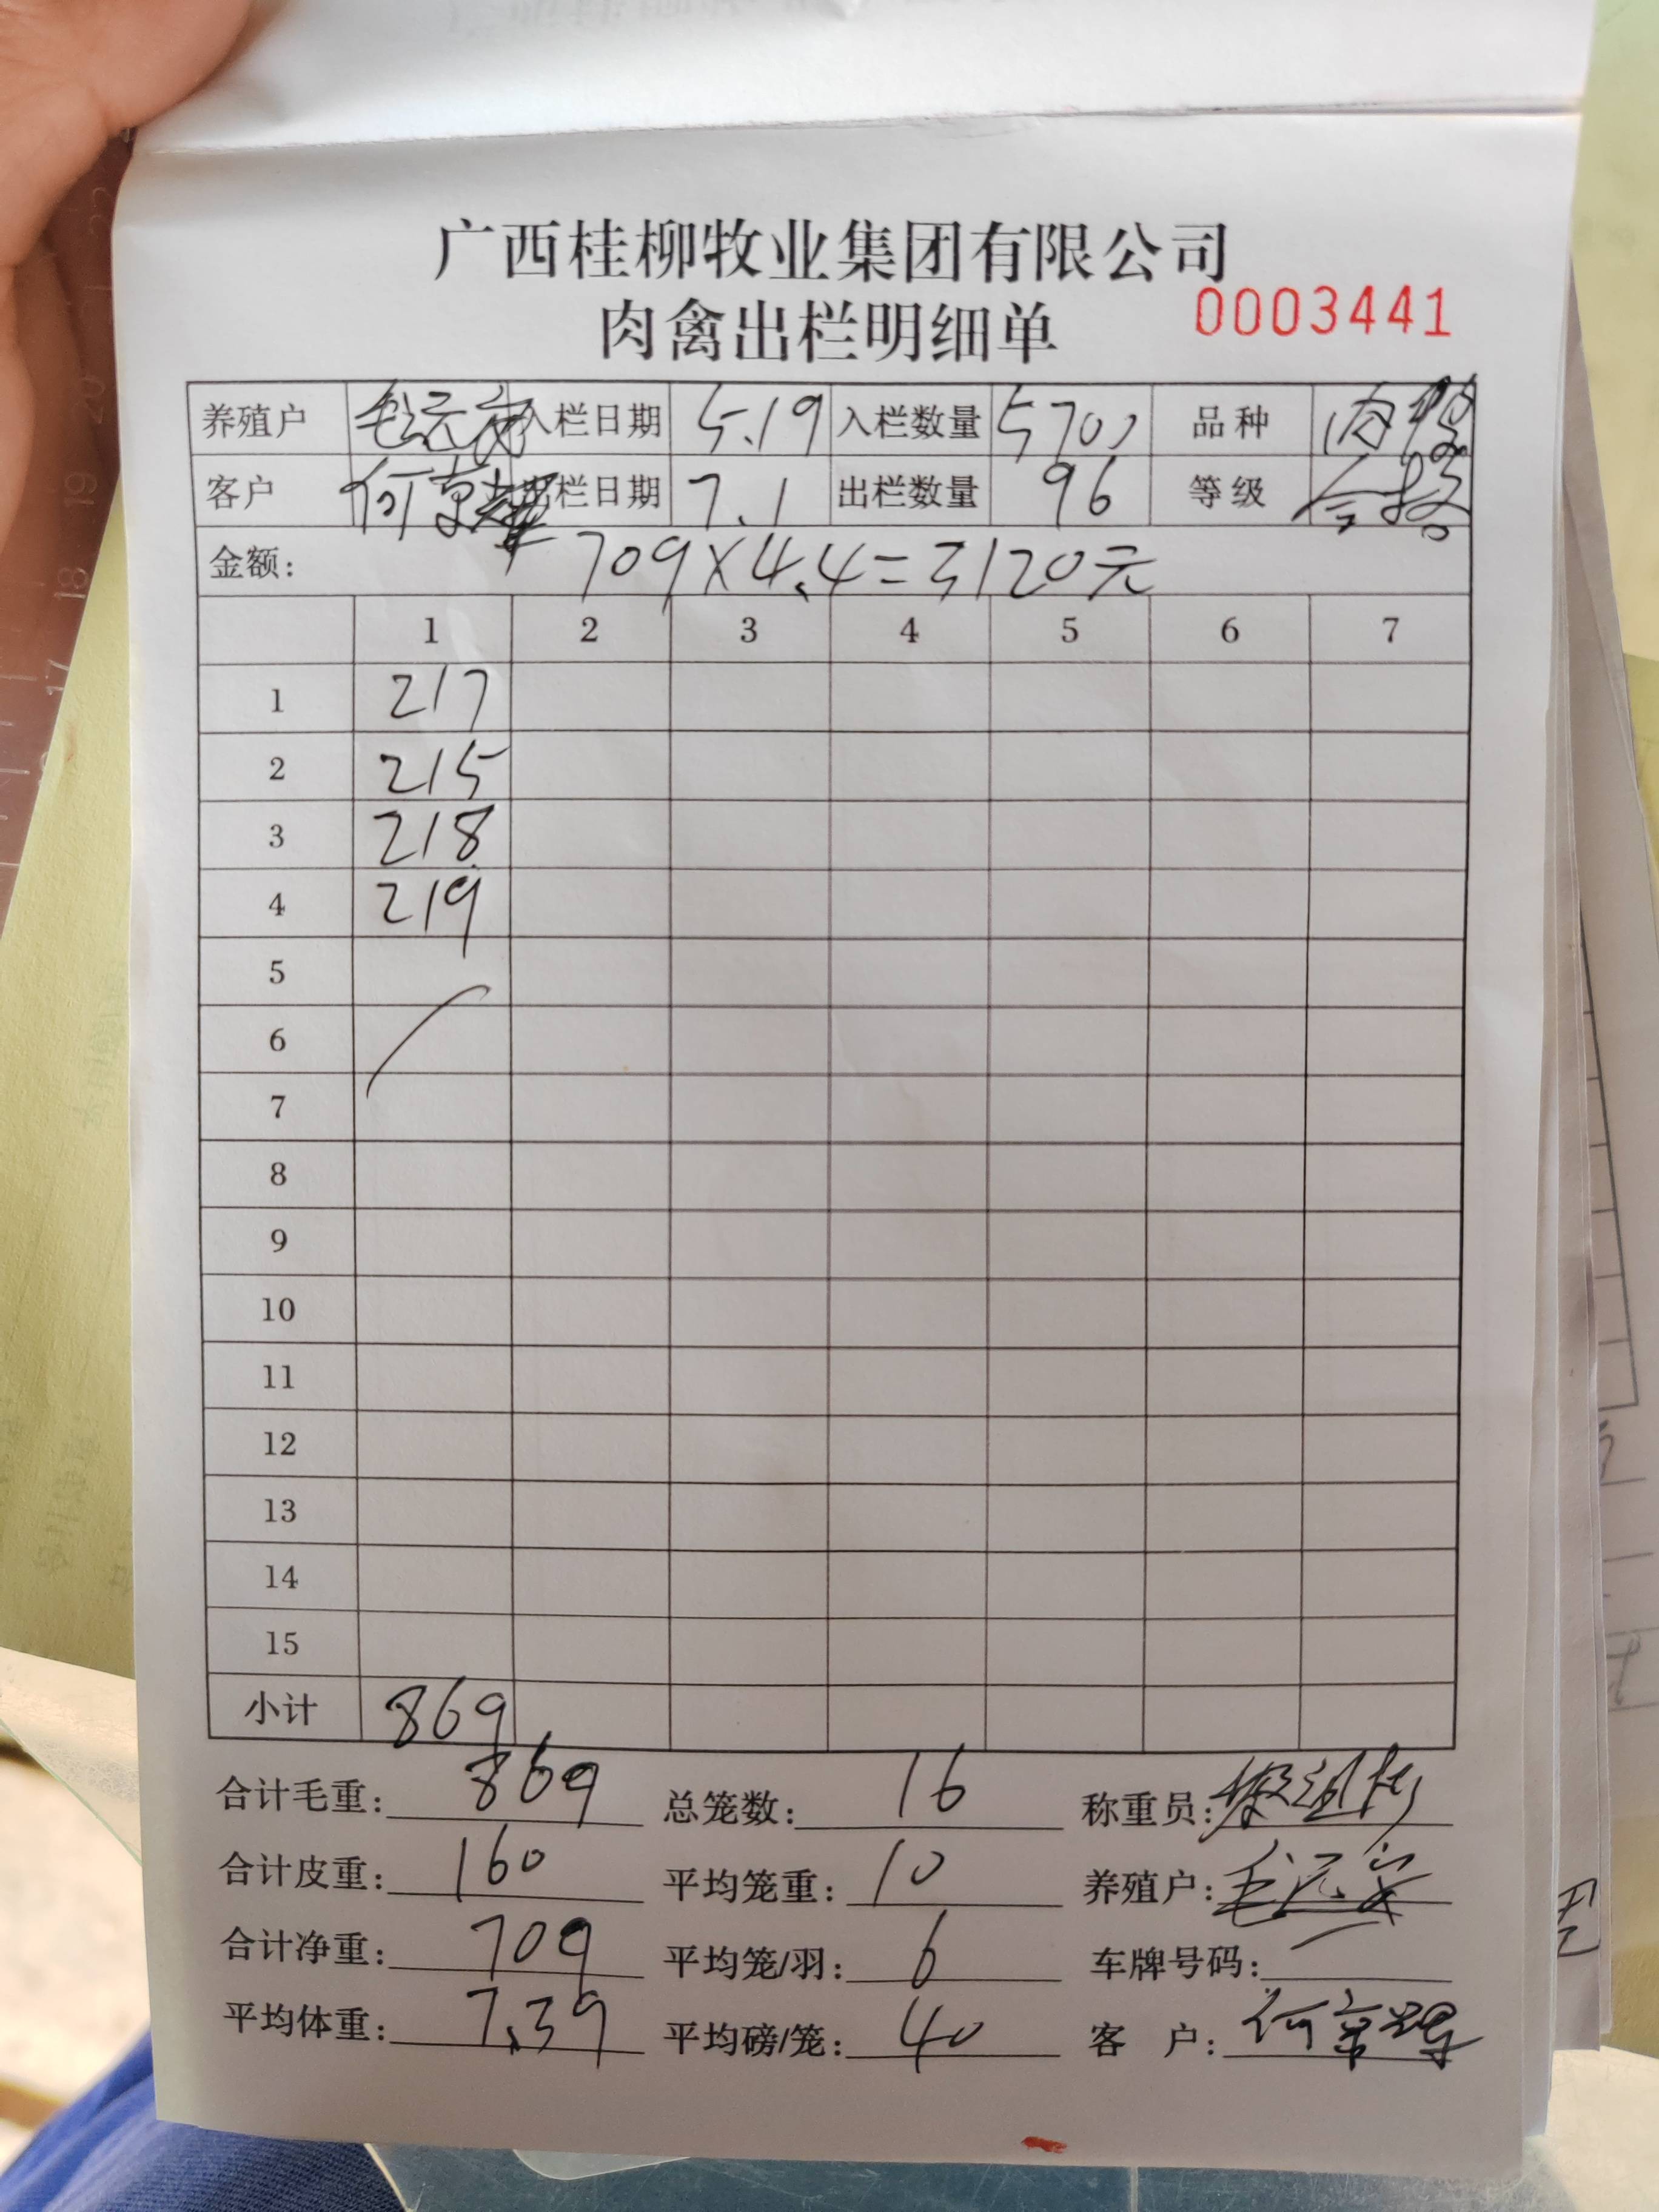 广西桂柳牧业集团有限公司
肉禽出栏明细单 0003441
养殖户 毛远安 入栏日期 5.19 入栏数量 5700 品种 肉
客户 何京 出栏日期 7.1 出栏数量 96 等级 合格
金额: 709×4.4=3120元
1 2 3 4 5 6 7
1 217
2 215
3 218
4 219
5
6
7
8
9
10
11
12
13
14
15
小计 869
合计毛重: 869 总笼数: 16 称重员:
合计皮重: 160 平均笼重: 10 养殖户: 毛远安
合计净重: 709 平均笼/羽: 6 车牌号码:
平均体重: 7.39 平均磅/笼: 40 客 户: 何京